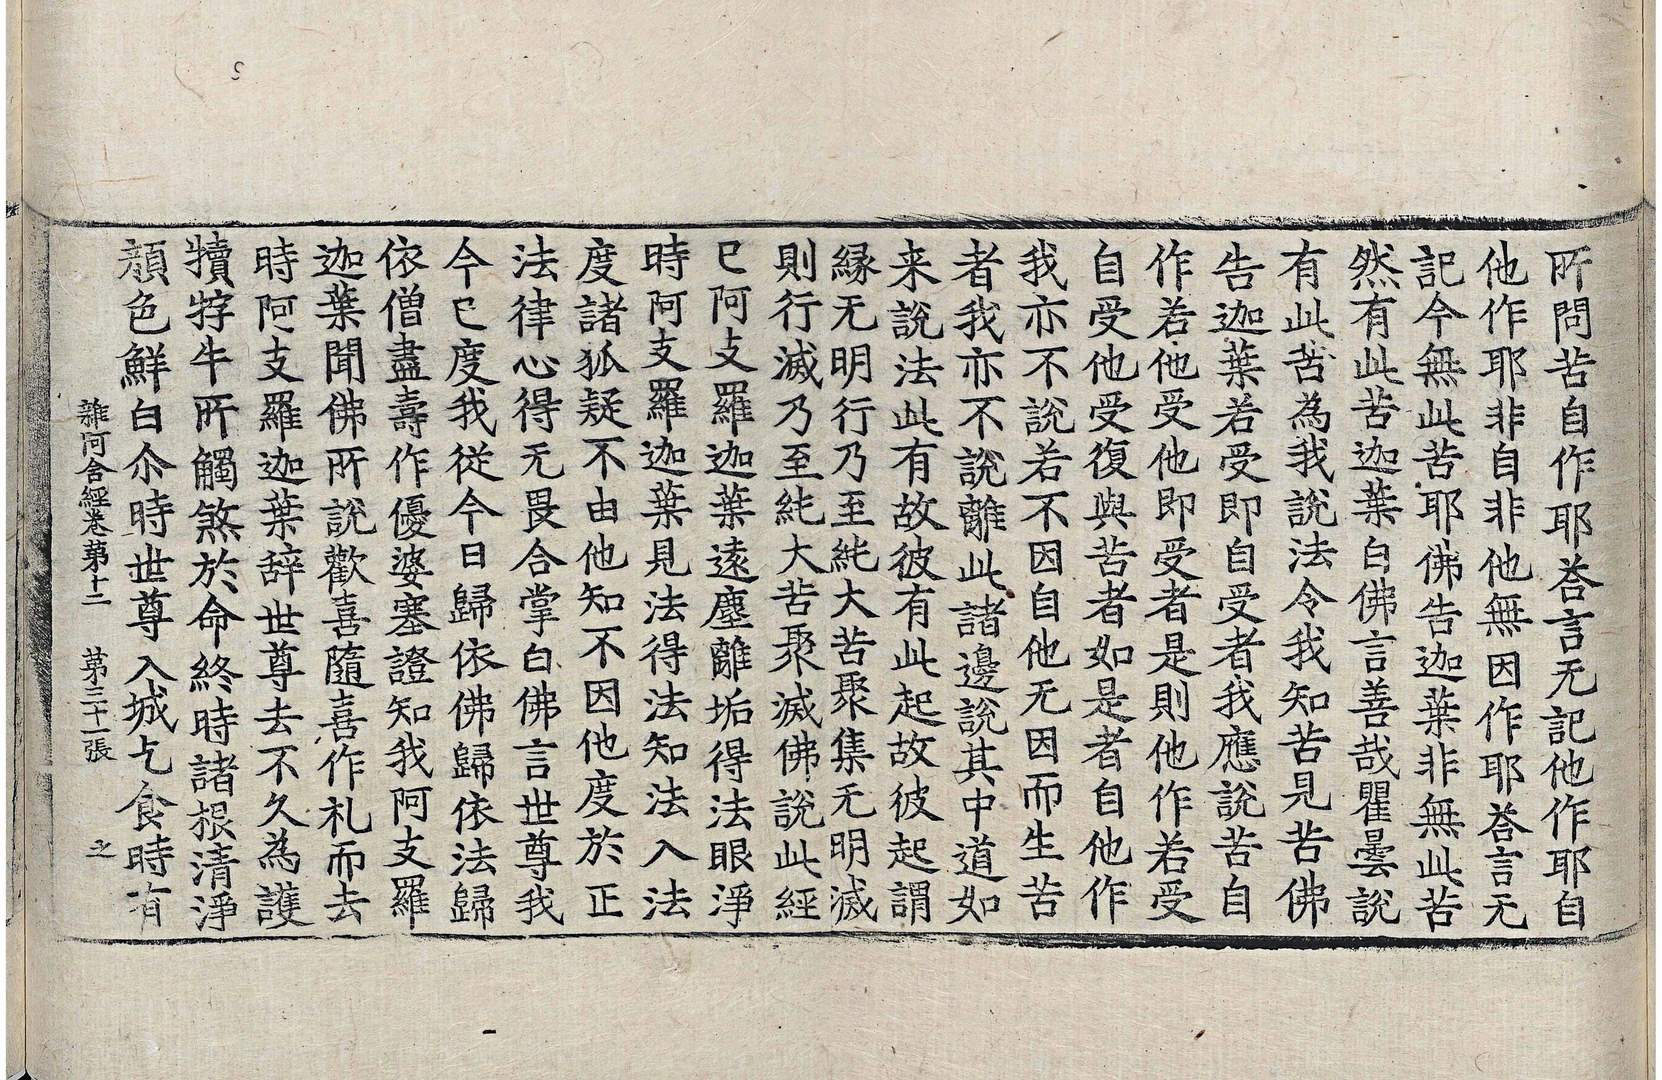 所問苦自作耶荅言无記他作耶自
他作耶非自非他無因作耶荅言无
記今無此苦耶佛告迦葉非無此苦
然有此苦迦葉白佛言善哉瞿曇說
有此苦為我說法令我知苦見苦佛
告迦葉若受即自受者我應說苦自
作若他受他即受者是則他作若受
自受他受復與苦者如是者自他作
我亦不說若不因自他无因而生苦
者我亦不說離此諸邊說其中道如
来說法此有故彼有此起故彼起謂
緣无明行乃至純大苦聚集无明滅
則行滅乃至純大苦聚滅佛說此經
已阿支羅迦葉遠塵離垢得法眼淨
時阿支羅迦葉見法得法知法入法
度諸狐疑不由他知不因他度於正
法律心得无畏合掌白佛言世尊我
今已度我從今日歸依佛歸依法歸
依僧盡壽作優婆塞證知我阿支羅
迦葉聞佛所說歡喜隨喜作礼而去
時阿支羅迦葉辞世尊去不久為護
犢牸牛所觸煞於命終時諸根清淨
顏色鮮白尒時世尊入城乞食時有
雜阿含經卷第十二 第三十一張 之